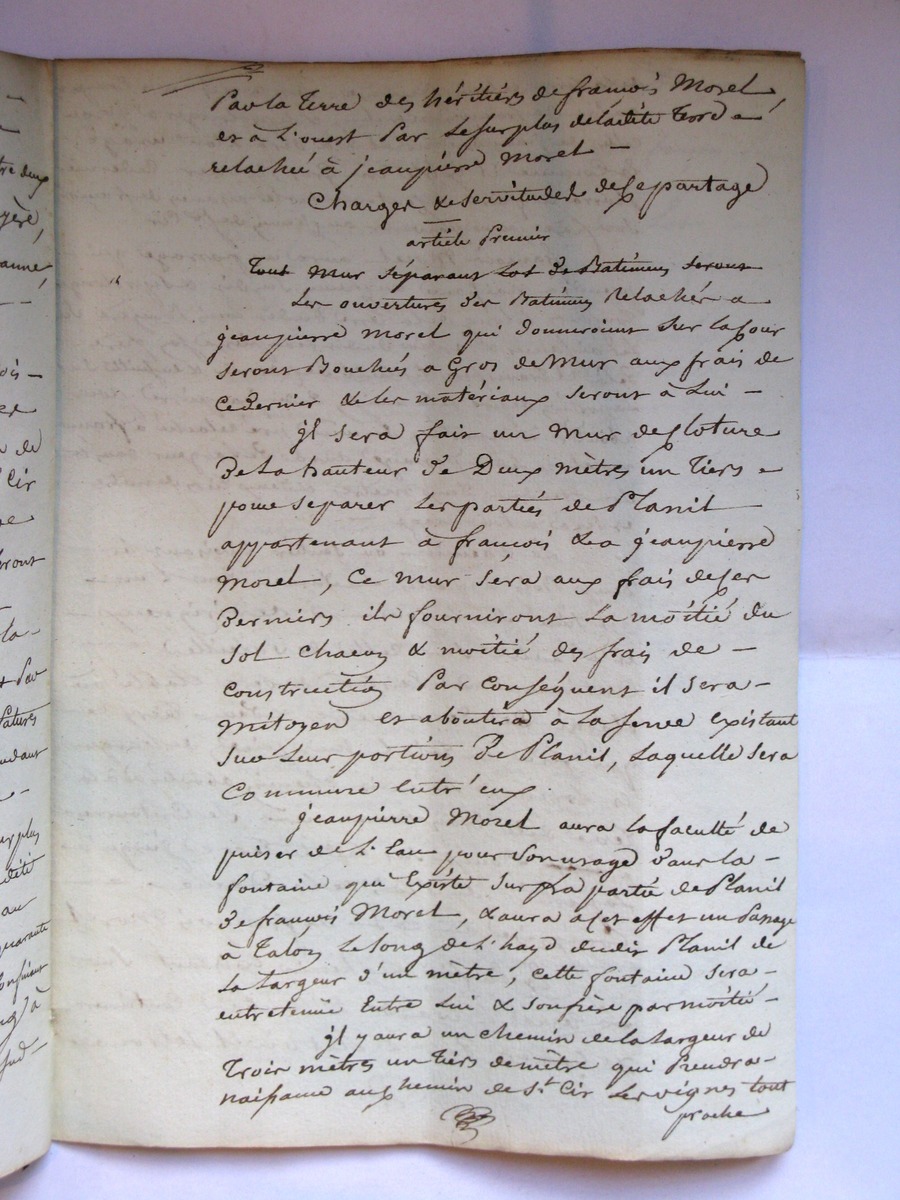 Par la Terre des héritiers de francois Morel,
et à L'ouest Par Le surplus de ladite Terre
relachée à jeanpierre Morel —
Charges & servitudes de ce partage
article Premier
Tout Mur séparant Lot de Batimens seront
Les ouvertures des Batimens Relachés a
jeanpierre Morel qui donneroient sur la Cour
seront Bouchées a Gros de Mur aux frais de
ce dernier & les matériaux seront à Lui —
jl sera fait un Mur de Cloture
De la hauteur de Deux mètres un Tiers
pour séparer Les parties de Planil
appartenant à francois & a jeanpierre
Morel, Ce mur séra aux frais de Ces
Derniers ils fourniront La moitié du
sol chacun & moitié des frais de —
construction Par conséquent il sera —
mitoyen et aboutira à la serve existant
sur Leur portions De Planil, Laquelle sera
Commune entr'eux.
jeanpierre Morel aura la faculté de
puiser de L'Eau pour son usage dans la —
fontaine qui Existe sur la partie de Planil
de francois Morel, & aura a cet effet un Passage
à Talon Le long de L' dudit Planil de
La Largeur d'un mètre, cette fontaine sera —
entretenue Entre Lui & son frère par moitié —
jl y aura un chemin de la Largeur de
Trois mètres un Tiers de mètre qui Prendra —
naissance au chemin de St Cir Les vignes tout
proche
tre deux
yère,
anne
ois —
de
Cir
ront
la —
Par
au
quarante
à
sud —